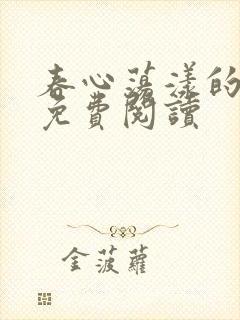 春心蕩漾的
免費閱讀
金菠蘿